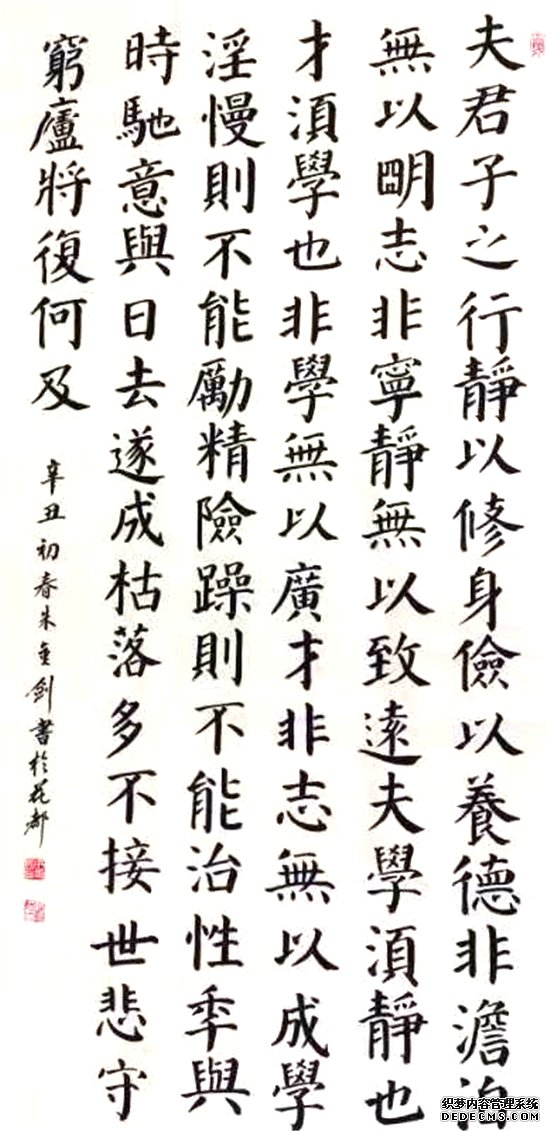 夫君子之行靜以修身儉以養德非澹泊
無以明志非寧靜無以致遠夫學須靜也
才須學也非學無以廣才非志無以成學
淫慢則不能勵精險躁則不能治性年與
時馳意與日去遂成枯落多不接世悲守
窮廬將復何及
辛丑初春朱剑書於花都
织梦内容管理系统
DEDECMS.COM